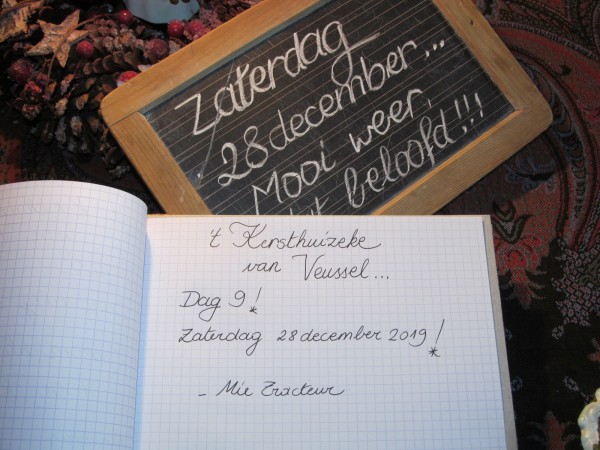 Zaterdag
28 december...
Mooi weer,
beloofd!!!
't Kersthuizeke
van Veussel...
Dag 9!
Zaterdag 28 december 2019!
- Mie Tracteur